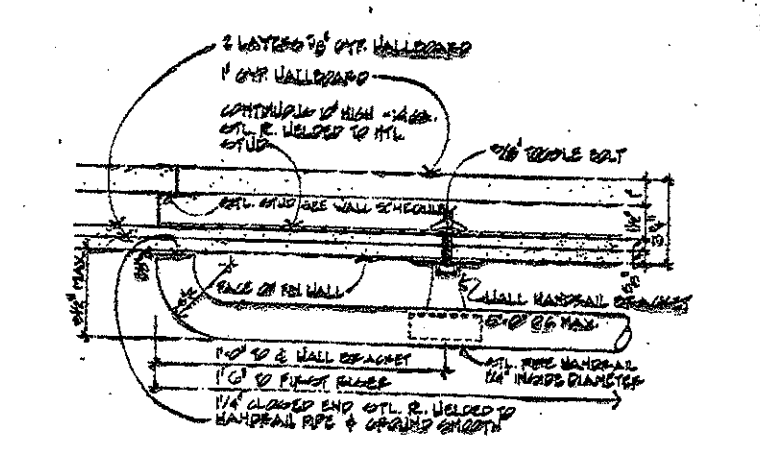 2 LAYERS 5/8" GYP. WALLBOARD
1" GYP. WALLBOARD
CONTINUOUS 10" HIGH - GA.
STL. PL. WELDED TO MTL
STUD
TOGGLE BOLT
STL. STUD SEE WALL SCHEDULE
1"
FACE OF FIN WALL
3 1/2" MAX.
WALL HANDRAIL BRACKET
5'-0" OC MAX.
1'-0" TO ℄ WALL BRACKET
1'-0" TO FIRST RISER
STL. PIPE HANDRAIL
1 1/4" INSIDE DIAMETER
1/4" CLOSED END STL. PL. WELDED TO
HANDRAIL PIPE & GROUND SMOOTH